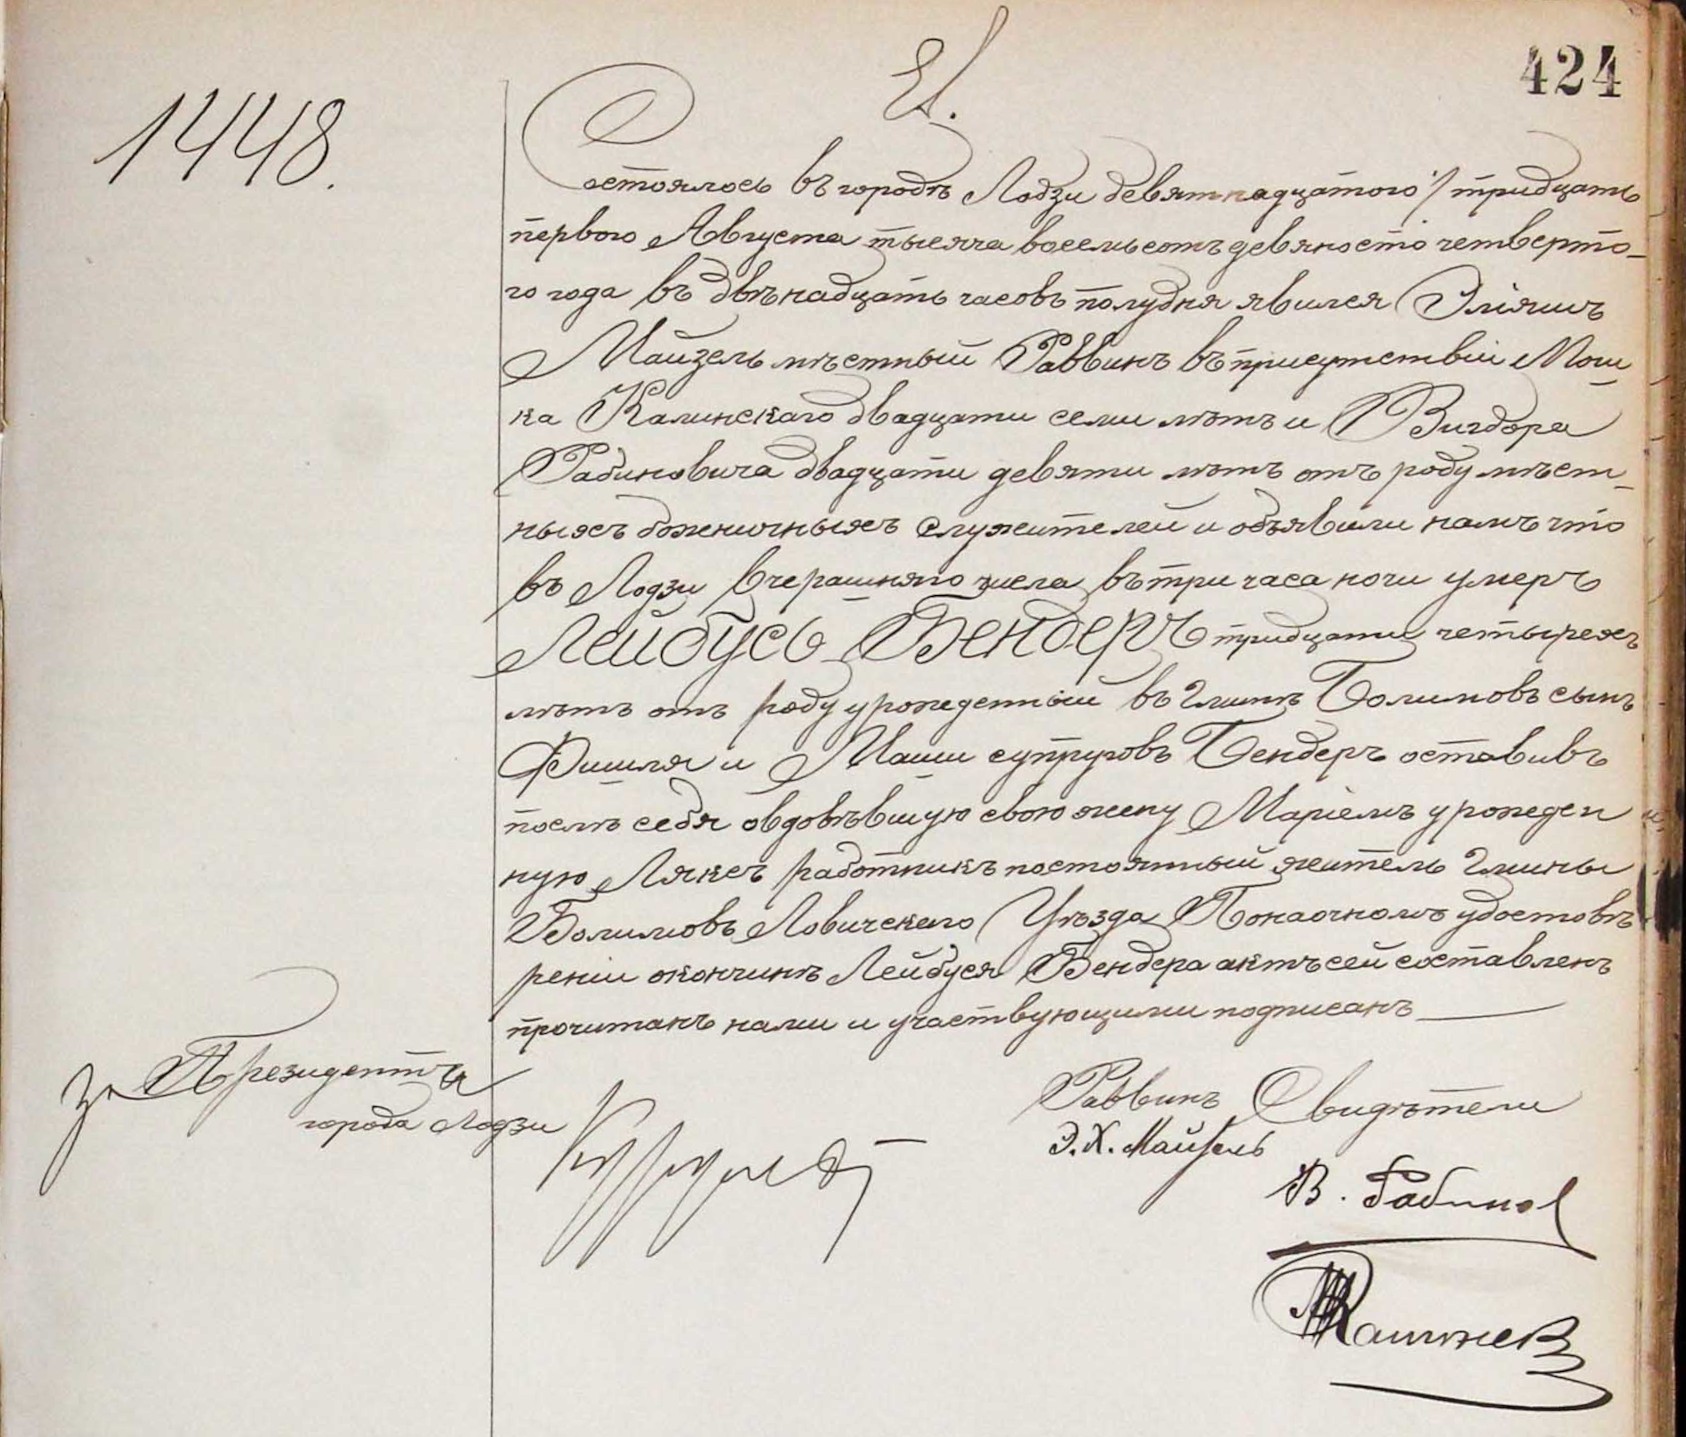 424
1448.
Состоялось въ городѣ Лодзи девятнадцатого / тридцать
перваго Августа тысяча восемьсотъ девяносто четверто-
го года въ двѣнадцать часовъ полудня явился Эліяшъ
Майзель мѣстный Раввинъ въ присутствіи Мош-
ка Калинскаго двадцати семи лѣтъ и Вигдора
Рабиновича двадцати девяти лѣтъ отъ роду мѣст-
ныхъ божничныхъ служителей и объявили намъ что
въ Лодзи вчерашняго числа въ три часа ночи умеръ
Лейбусь Бендеръ тридцати четырехъ
лѣтъ отъ роду урожденный въ Гминѣ Болимовъ сынъ
Фишля и Маши супруговъ Бендеръ оставивъ
послѣ себя овдовѣвшую свою жену Маріемъ урожден
ную работникъ постоянный житель Гмины
Болимовъ Ловичскаго Уѣзда По наочномъ удостовѣ
реніи окончинѣ Лейбуся Бендера актъ сей составленъ
прочитанъ нами и участвующими подписанъ
за Президента
города Лодзи
Раввинъ Свидѣтели
Э.Х. Майзель
В. Рабинов